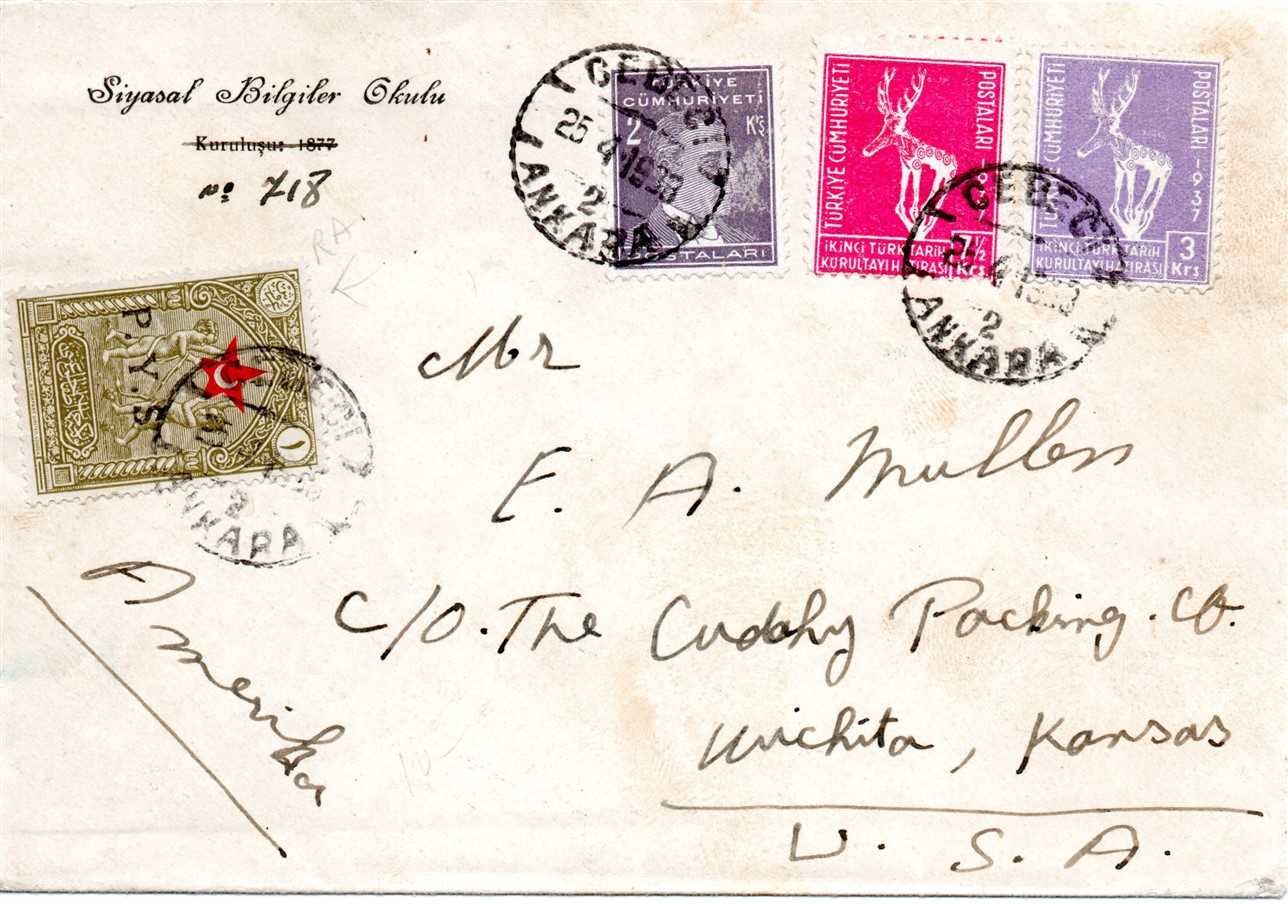 Siyasal Bilgiler Okulu
Kuruluşu: 1877
No 718
RA
TÜRKİYE
CÜMHURİYETİ
2 Krş
POSTALARI
CEBECİ
25 4 1938
2
ANKARA
TÜRKİYE CÜMHURİYETİ
POSTALARI - 1937
İKİNCİ TÜRK TARİH
KURULTAYI HATIRASI
7½ Krş
TÜRKİYE CÜMHURİYETİ
POSTALARI - 1937
İKİNCİ TÜRK TARİH
KURULTAYI HATIRASI
3 Krş
CEBECİ
2
ANKARA
P. Y. S.
١
CEBECİ
2
ANKARA
Mr
E. A. Mullen
c/o. The Cudahy Packing. co.
Wichita, Kansas
U. S. A.
Amerika